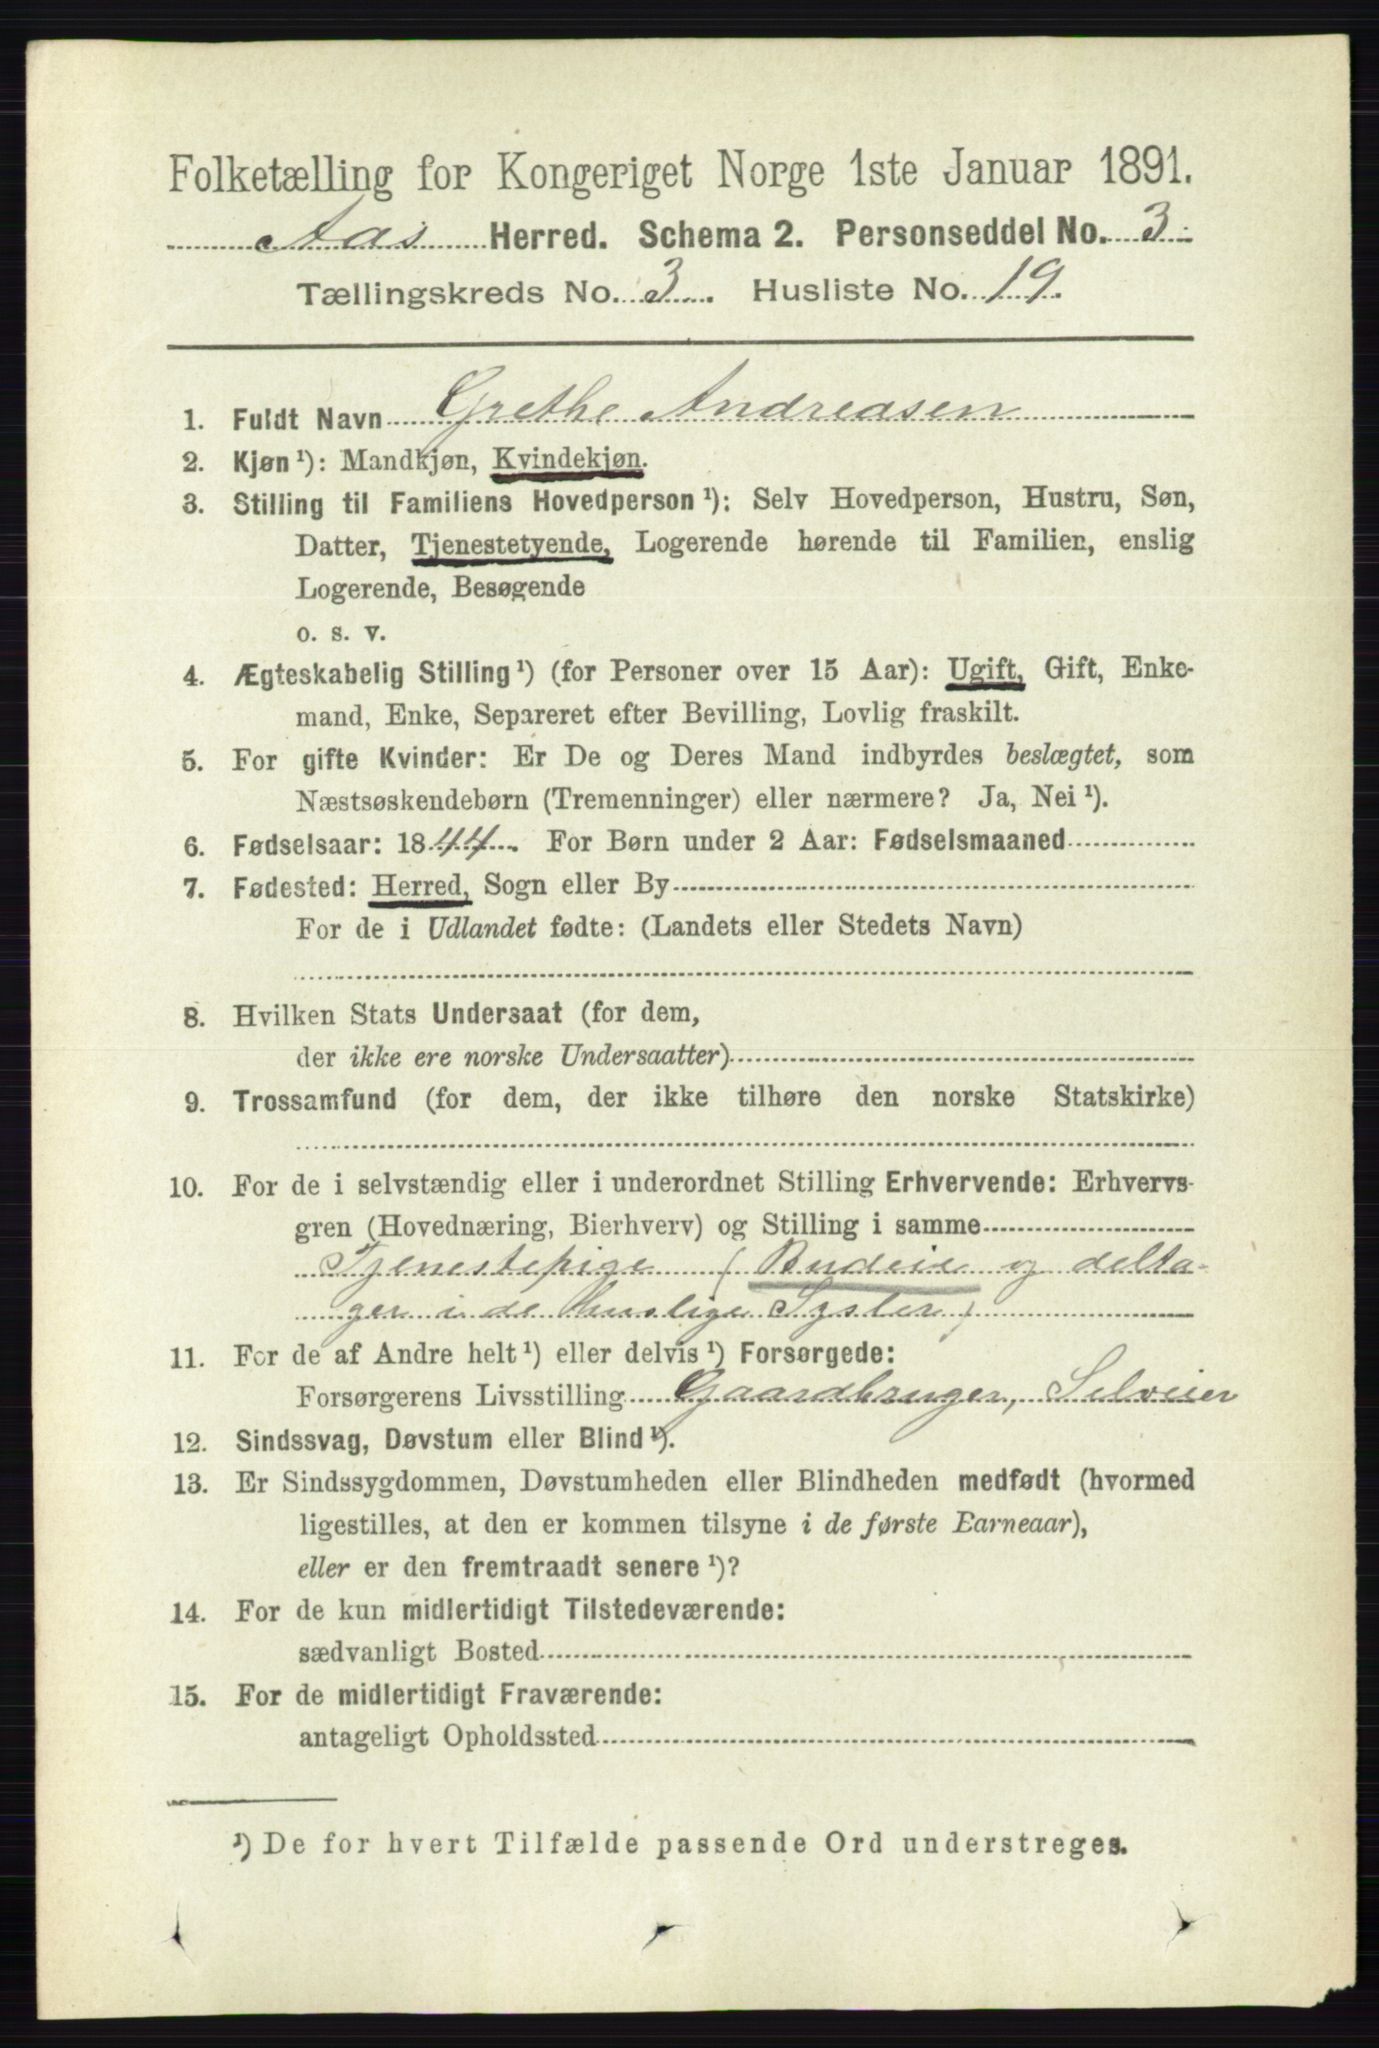 Folketælling for Kongeriget Norge 1ste Januar 1891.
Aas Herred. Schema 2. Personseddel No. 3
Tællingskreds No. 3. Husliste No. 19.
1. Fuldt Navn Grethe Andreasen
2. Kjøn¹): Mandkjøn, Kvindekjøn.
3. Stilling til Familiens Hovedperson¹): Selv Hovedperson, Hustru, Søn,
Datter, Tjenestetyende, Logerende hørende til Familien, enslig
Logerende, Besøgende
o. s. v.
4. Ægteskabelig Stilling¹) (for Personer over 15 Aar): Ugift, Gift, Enke-
mand, Enke, Separeret efter Bevilling, Lovlig fraskilt.
5. For gifte Kvinder: Er De og Deres Mand indbyrdes beslægtet, som
Næstsøskendebørn (Tremenninger) eller nærmere? Ja, Nei¹).
6. Fødselsaar: 1844. For Børn under 2 Aar: Fødselsmaaned
7. Fødested: Herred, Sogn eller By
For de i Udlandet fødte: (Landets eller Stedets Navn)
8. Hvilken Stats Undersaat (for dem,
der ikke ere norske Undersaatter)
9. Trossamfund (for dem, der ikke tilhøre den norske Statskirke)
10. For de i selvstændig eller i underordnet Stilling Erhvervende: Erhvervs-
gren (Hovednæring, Bierhverv) og Stilling i samme
Tjenestepige (Budeie og delta-
ger i de huslige Sysler)
11. For de af Andre helt¹) eller delvis¹) Forsørgede:
Forsørgerens Livsstilling Gaardbruger, Selveier
12. Sindssvag, Døvstum eller Blind¹).
13. Er Sindssygdommen, Døvstumheden eller Blindheden medfødt (hvormed
ligestilles, at den er kommen tilsyne i de første Earneaar),
eller er den fremtraadt senere¹)?
14. For de kun midlertidigt Tilstedeværende:
sædvanligt Bosted
15. For de midlertidigt Fraværende:
antageligt Opholdssted
¹) De for hvert Tilfælde passende Ord understreges.